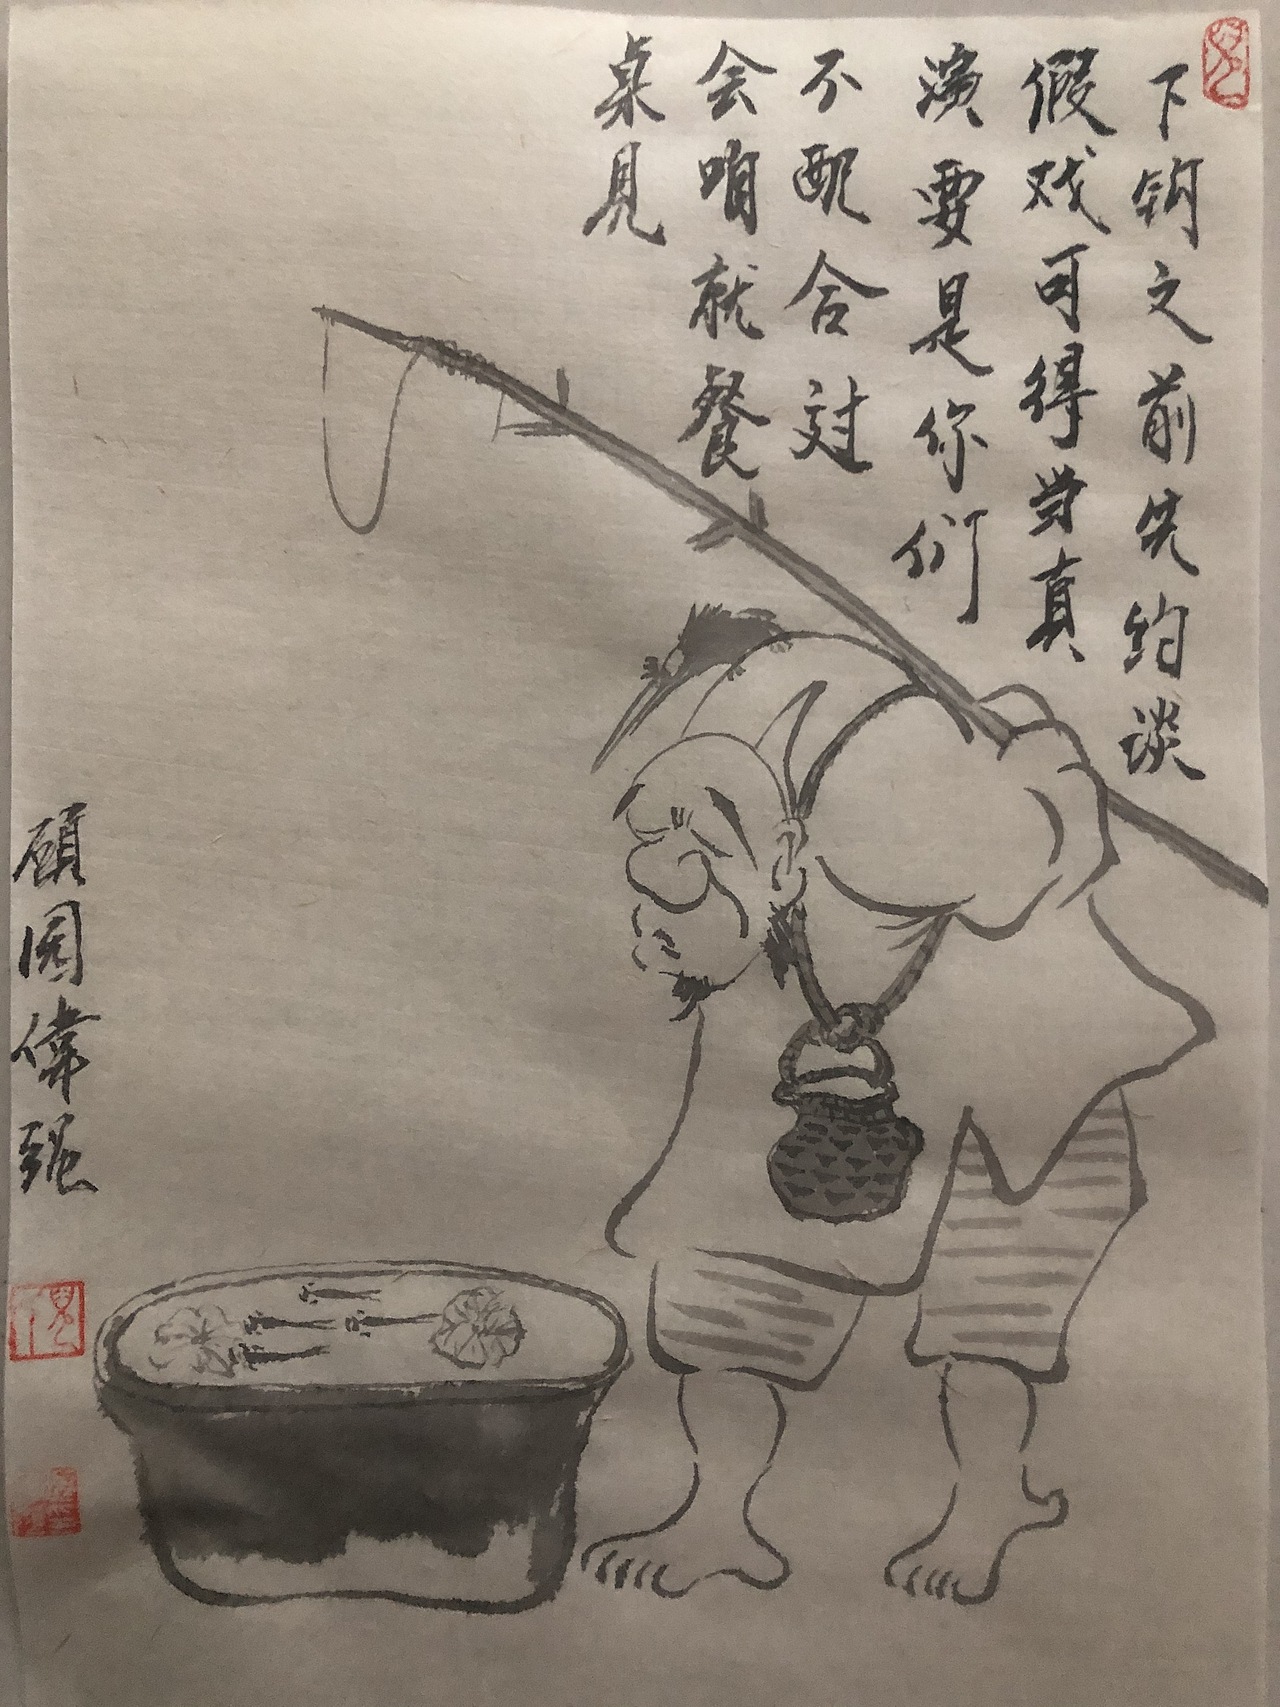 下钩之前先约谈
假戏可得当真
演要是你们
不配合过
会咱就餐
桌見
顧园偉强